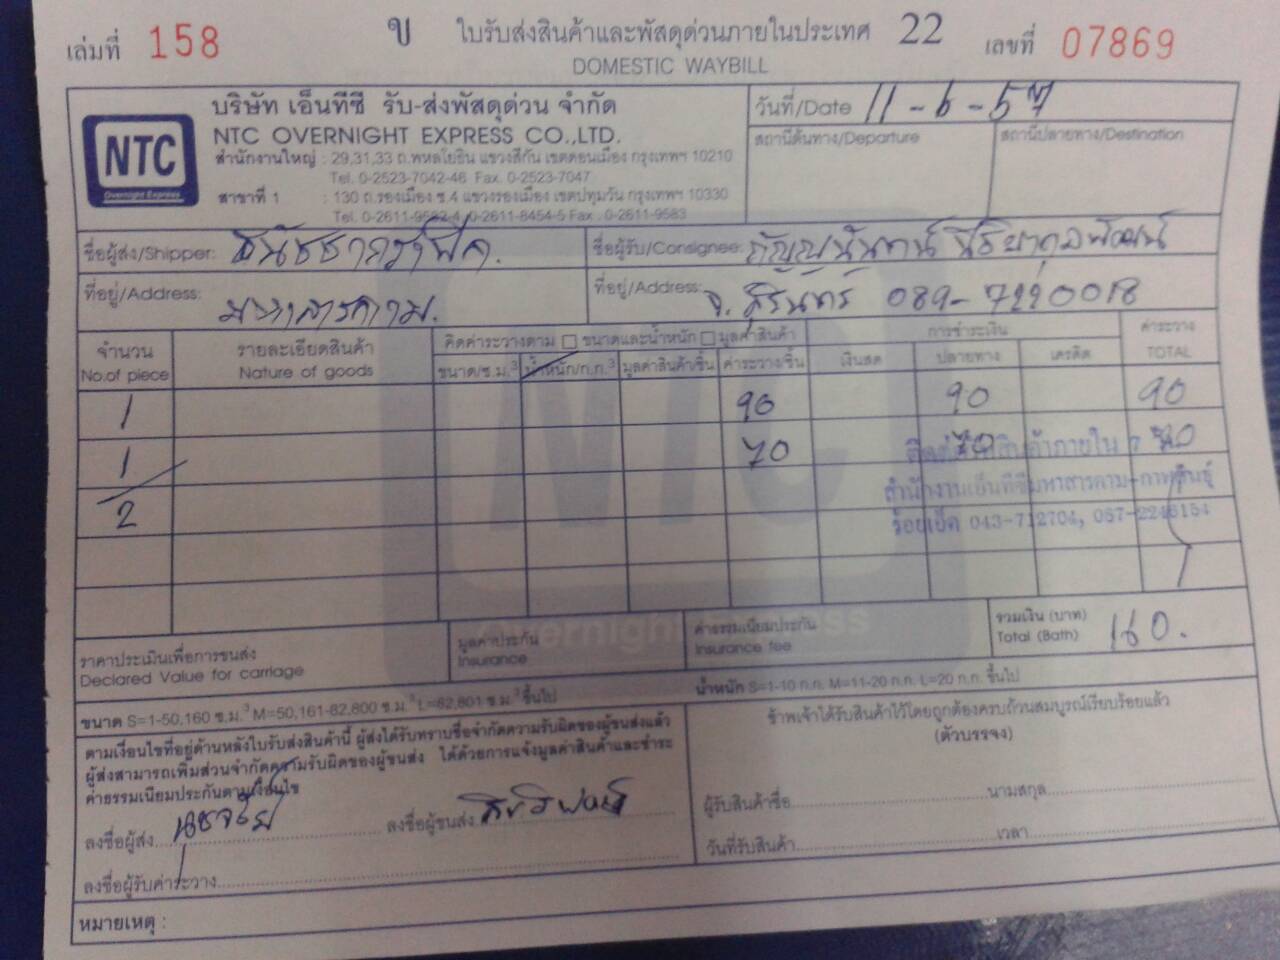 เล่มที่ 158 ข ใบรับส่งสินค้าและพัสดุด่วนภายในประเทศ 22 เลขที่ 07869
DOMESTIC WAYBILL
NTC
Overnight Express
บริษัท เอ็นทีซี รับ-ส่งพัสดุด่วน จำกัด
NTC OVERNIGHT EXPRESS CO.,LTD.
สำนักงานใหญ่ : 29,31,33 ถ.พหลโยธิน แขวงสีกัน เขตดอนเมือง กรุงเทพฯ 10210
Tel. 0-2523-7042-46 Fax. 0-2523-7047
สาขาที่ 1 : 130 ถ.รองเมือง ซ.4 แขวงรองเมือง เขตปทุมวัน กรุงเทพฯ 10330
Tel. 0-2611-9582-4, 0-2611-8454-5 Fax. 0-2611-9583
วันที่/Date 11-6-57
สถานีต้นทาง/Departure สถานีปลายทาง/Destination
ชื่อผู้ส่ง/Shipper: ชื่อผู้รับ/Consignee:
ที่อยู่/Address: มหาสารคาม. ที่อยู่/Address: จ. สุรินทร์
จำนวน รายละเอียดสินค้า คิดค่าระวางตาม ขนาดและน้ำหนัก มูลค่าสินค้า การชำระเงิน ค่าระวาง
No.of piece Nature of goods ขนาด/ซ.ม.³ น้ำหนัก/ก.ก.³ มูลค่าสินค้า/ชิ้น ค่าระวาง/ชิ้น เงินสด ปลายทาง เครดิต TOTAL
1 90 90 90
1 70 70 70
2
สำนักงานเอ็นทีซีมหาสารคาม-กาฬสินธุ์
ร้อยเอ็ด 043-712704,
Overnight Express
ราคาประเมินเพื่อการขนส่ง มูลค่าประกัน ค่าธรรมเนียมประกัน รวมเงิน (บาท)
Declared Value for carriage Insurance Insurance fee Total (Bath) 160.
ขนาด S=1-50,160 ซ.ม.³ M=50,161-82,800 ซ.ม.³ L=82,801 ซ.ม.³ ขึ้นไป น้ำหนัก S=1-10 ก.ก. M=11-20 ก.ก. L=20 ก.ก. ขึ้นไป
ตามเงื่อนไขที่อยู่ด้านหลังใบรับส่งสินค้านี้ ผู้ส่งได้รับทราบข้อจำกัดความรับผิดของผู้ขนส่งแล้ว
ผู้ส่งสามารถเพิ่มส่วนจำกัดความรับผิดของผู้ขนส่ง ได้ด้วยการแจ้งมูลค่าสินค้าและชำระ
ค่าธรรมเนียมประกันตามเงื่อนไข
ลงชื่อผู้ส่ง ลงชื่อผู้ขนส่ง
ลงชื่อผู้รับค่าระวาง
ข้าพเจ้าได้รับสินค้าไว้โดยถูกต้องครบถ้วนสมบูรณ์เรียบร้อยแล้ว
(ตัวบรรจง)
ผู้รับสินค้าชื่อ นามสกุล
วันที่รับสินค้า เวลา
หมายเหตุ :